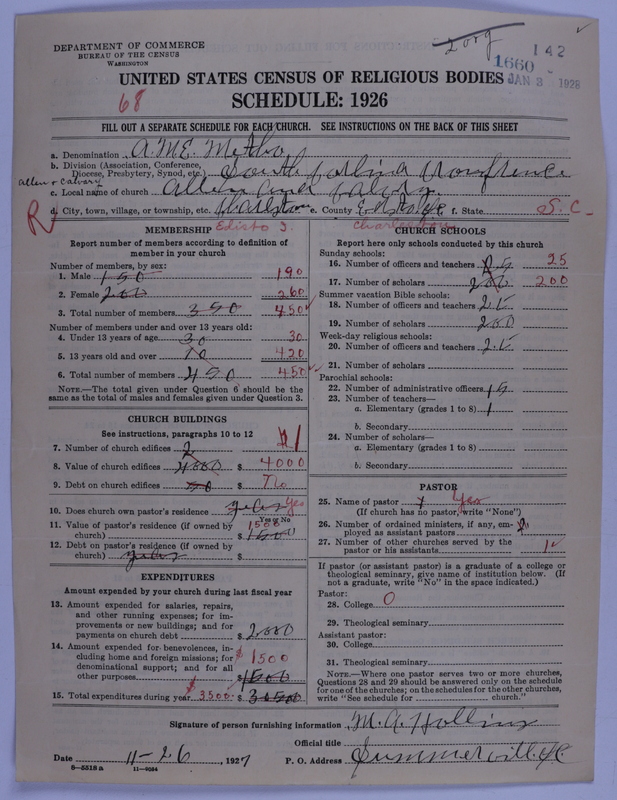 2 org
142
1660
JAN 3 - 1928
DEPARTMENT OF COMMERCE
BUREAU OF THE CENSUS
WASHINGTON
UNITED STATES CENSUS OF RELIGIOUS BODIES
68
SCHEDULE: 1926
FILL OUT A SEPARATE SCHEDULE FOR EACH CHURCH. SEE INSTRUCTIONS ON THE BACK OF THIS SHEET
a. Denomination A.M.E. Metho
b. Division (Association, Conference,
Diocese, Presbytery, Synod, etc.) South Carlina Conference
Allen & Calvary
c. Local name of church Allen and Calvary
R
d. City, town, village, or township, etc. Charlestone e. County Edisto f. State S. C.
Edisto I. Charlestown
MEMBERSHIP
Report number of members according to definition of
member in your church
Number of members, by sex:
1. Male 150 190
2. Female 200 260
3. Total number of members 350 450
Number of members under and over 13 years old:
4. Under 13 years of age 30 30
5. 13 years old and over 70 420
6. Total number of members 450 450
NOTE.—The total given under Question 6 should be the
same as the total of males and females given under Question 3.
CHURCH BUILDINGS
See instructions, paragraphs 10 to 12
7. Number of church edifices 2 1
8. Value of church edifices 4000 $ 4000
9. Debt on church edifices $ No
10. Does church own pastor's residence? yes Yes
Yes or No
11. Value of pastor's residence (if owned by
church) $ 1500
12. Debt on pastor's residence (if owned by
church) $
EXPENDITURES
Amount expended by your church during last fiscal year
13. Amount expended for salaries, repairs,
and other running expenses; for im-
provements or new buildings; and for
payments on church debt $ 2000
14. Amount expended for benevolences, in-
cluding home and foreign missions; for
denominational support; and for all
other purposes $ 1500
15. Total expenditures during year $3500 $
CHURCH SCHOOLS
Report here only schools conducted by this church
Sunday schools:
16. Number of officers and teachers 25 25
17. Number of scholars 200 200
Summer vacation Bible schools:
18. Number of officers and teachers 25
19. Number of scholars 200
Week-day religious schools:
20. Number of officers and teachers 25
21. Number of scholars
Parochial schools:
22. Number of administrative officers 15
23. Number of teachers—
a. Elementary (grades 1 to 8) 1
b. Secondary
24. Number of scholars—
a. Elementary (grades 1 to 8)
b. Secondary
PASTOR
25. Name of pastor Yes
(If church has no pastor, write "None")
26. Number of ordained ministers, if any, em-
ployed as assistant pastors
27. Number of other churches served by the
pastor or his assistants 1
If pastor (or assistant pastor) is a graduate of a college or
theological seminary, give name of institution below. (If
not a graduate, write "No" in the space indicated.)
Pastor:
28. College O
29. Theological seminary
Assistant pastor:
30. College
31. Theological seminary
NOTE.—Where one pastor serves two or more churches,
Questions 28 and 29 should be answered only on the schedule
for one of the churches; on the schedules for the other churches,
write "See schedule for church."
Signature of person furnishing information M. A. Hollins
Official title
Date 11-26, 1927 P. O. Address Summerville SC
8—5518 a 11—9084